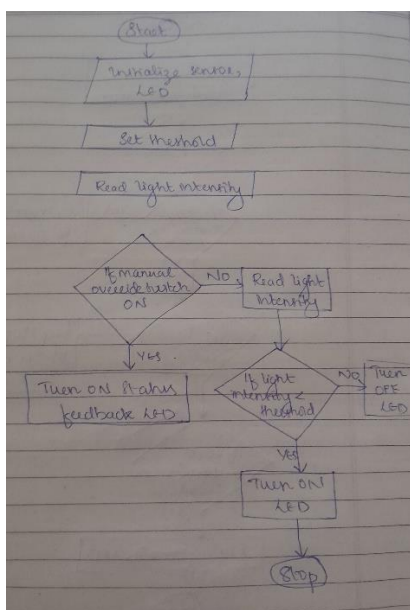 Start
Initialize sensor,
LED
Set threshold
Read light intensity
If manual
override switch
ON
NO
Read light
Intensity
YES
Turn ON Status
feedback LED
If light
intensity <
threshold
NO
Turn
OFF
LED
YES
Turn ON
LED
Stop